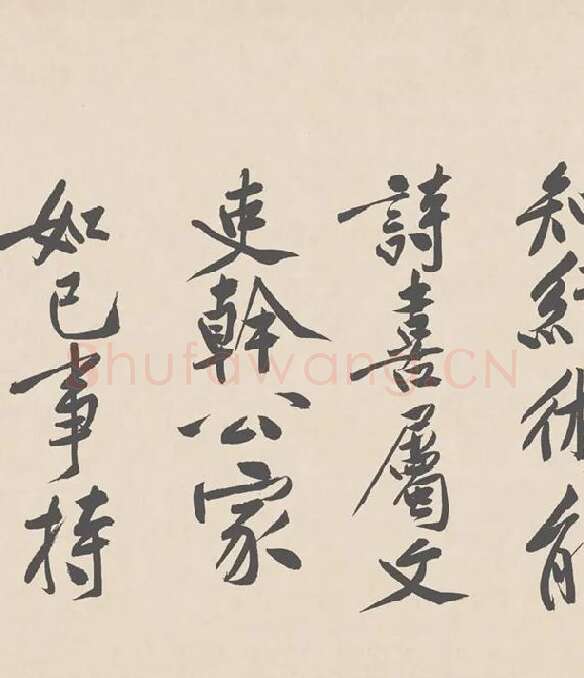 知經術能
詩喜屬文
吏幹公家
如己事持
Shufawang.CN